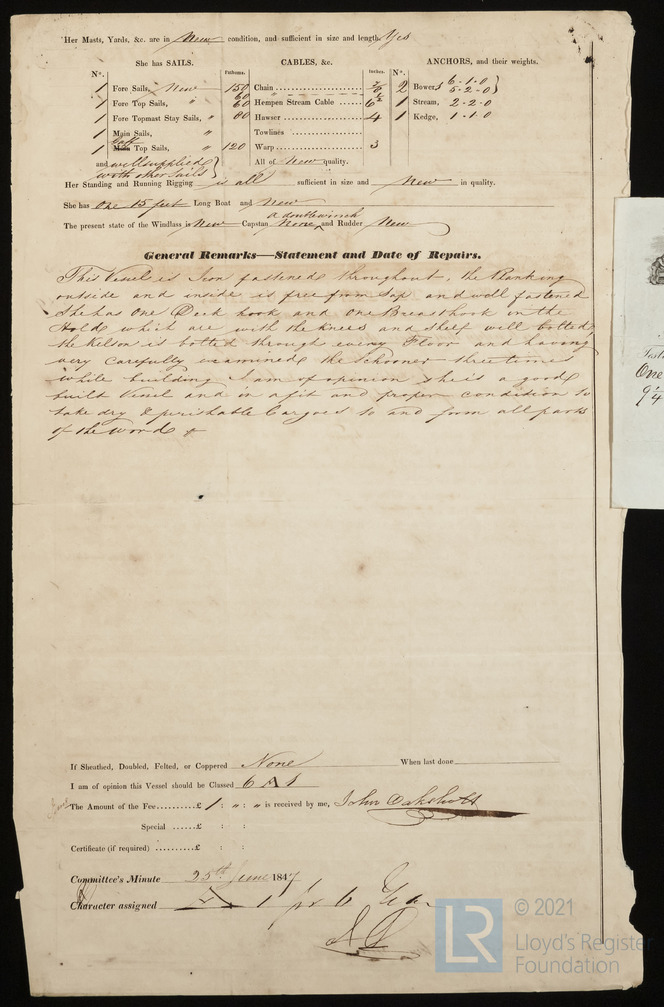 Her Masts, Yards, &c. are in New condition, and sufficient in size and length. Yes
She has SAILS.
CABLES, &c.
ANCHORS, and their weights.
N°.
Fathoms.
Inches.
N°.
1 Fore Sails, New
1 Fore Top Sails, "
1 Fore Topmast Stay Sails, "
1 Main Sails, "
Gaff
1 Main Top Sails, "
and well supplied
with other Sails
150 Chain
60
60 Hempen Stream Cable 6½
80 Hawser 4
Towlines
120 Warp 3
All of New quality.
2 Bowers 6-1-0
5-2-0
1 Stream, 2-2-0
1 Kedge, 1-1-0
Her Standing and Running Rigging is all sufficient in size and New in quality.
She has One 15 feet Long Boat and New
a double winch
The present state of the Windlass is New Capstan None and Rudder New
General Remarks—Statement and Date of Repairs.
This Vessel is Iron fastened throughout, the Planking
outside and inside is free from Sap and well fastened
She has One Deck hook and One Breasthook in the
Hold which are with the Knees and Shelf well bolted,
the Kelson is bolted through every Floor and having
very carefully examined the Schooner three times
while building I am of opinion she is a good
built Vessel and in a fit and proper condition to
take dry & perishable Cargoes to and from all parts
of the World
If Sheathed, Doubled, Felted, or Coppered None When last done
I am of opinion this Vessel should be Classed 6 A 1
The Amount of the Fee..........£ 1 : " : " is received by me, John Oakshott
Special ......£ : :
Certificate (if required) ..........£ : :
Committee's Minute 25th June 1847
Character assigned A 1 for 6 Years
One
9
4
LR
© 2021
Lloyd's Register
Foundation